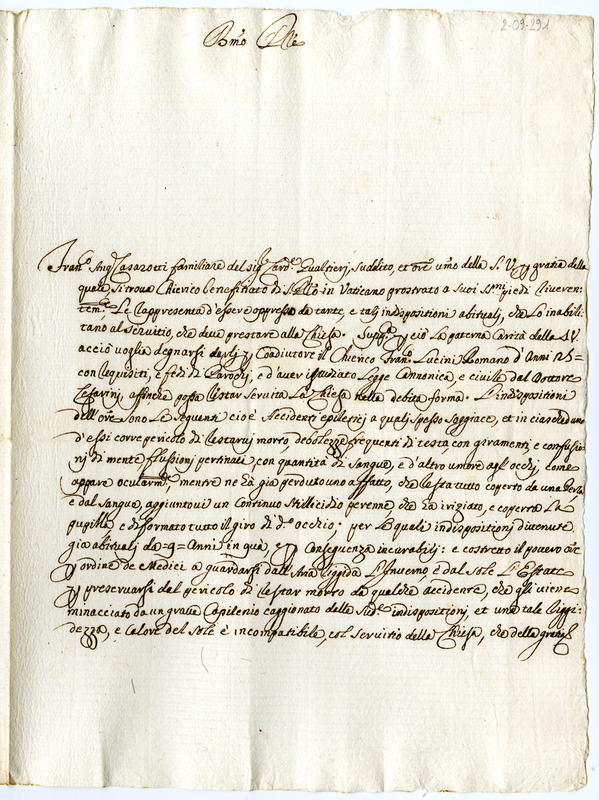 2-09-291
Bmo Pre
Franco Angl Casarotti familiare del sigr Cardle Gualtieri, suddito, et ore umo della S. V. p gratia della
quale si trova Chierico beneficiato di S. Pietro in Vaticano prostrato a suoi Smi piedi riveren
temte Le rappresenta d'essere oppresso da tante, e tali indispositioni abituali, che Lo inabili
tano al servitio, che deve prestare alla Chiesa. Suppca p ciò La paterna Carità della S.V.
acciò voglia degnarsi darli p Coadiutore il Chierico Franco Lucini Romano d'Anni 25=
con requisiti, e fedi di Parochi, e d'aver studiato Legge Cannonica, e civile dal Dottore
Cesarini, affinche possa restar servita La Chiesa nella debita forma. L'indispositioni
dell'ore sono Le seguenti cioè Accidenti epiletici a quali spesso soggiace, et in ciascheduno
d'essi corre pericolo di restarvi morto, debolezze frequenti di testa, con giramenti, e confusio
ni di mente flussioni pertinaci, con quantità di sangue, e d'altro umore agl'occhi, come
appare ocularmte, mentre ne hà già perduto uno affatto, che resta tutto coperto da una Perla
e dal sangue, aggiuntovi un Continuo stillicidio perenne che hà iriziato, e coperta La
pupilla e difformato tutto il giro di do occhio; per Le quali indispositioni divenute
gia abituali da =9= Anni in quà, e p Consequenza incurabili: e costretto il povero ore
p ordine de Medici a guardarsi dall'Aria riggida L'Inverno, e dal Sole L'Estate
p preservarsi dal pericolo di restar morto da qualche accidente, che gli viene
minacciato da un grave Capilenio caggionato dalle Sude indispositioni, et una tale riggi:
dezza, e Calore del Sole è incompatibile, col servitio della Chiesa, che della gratia